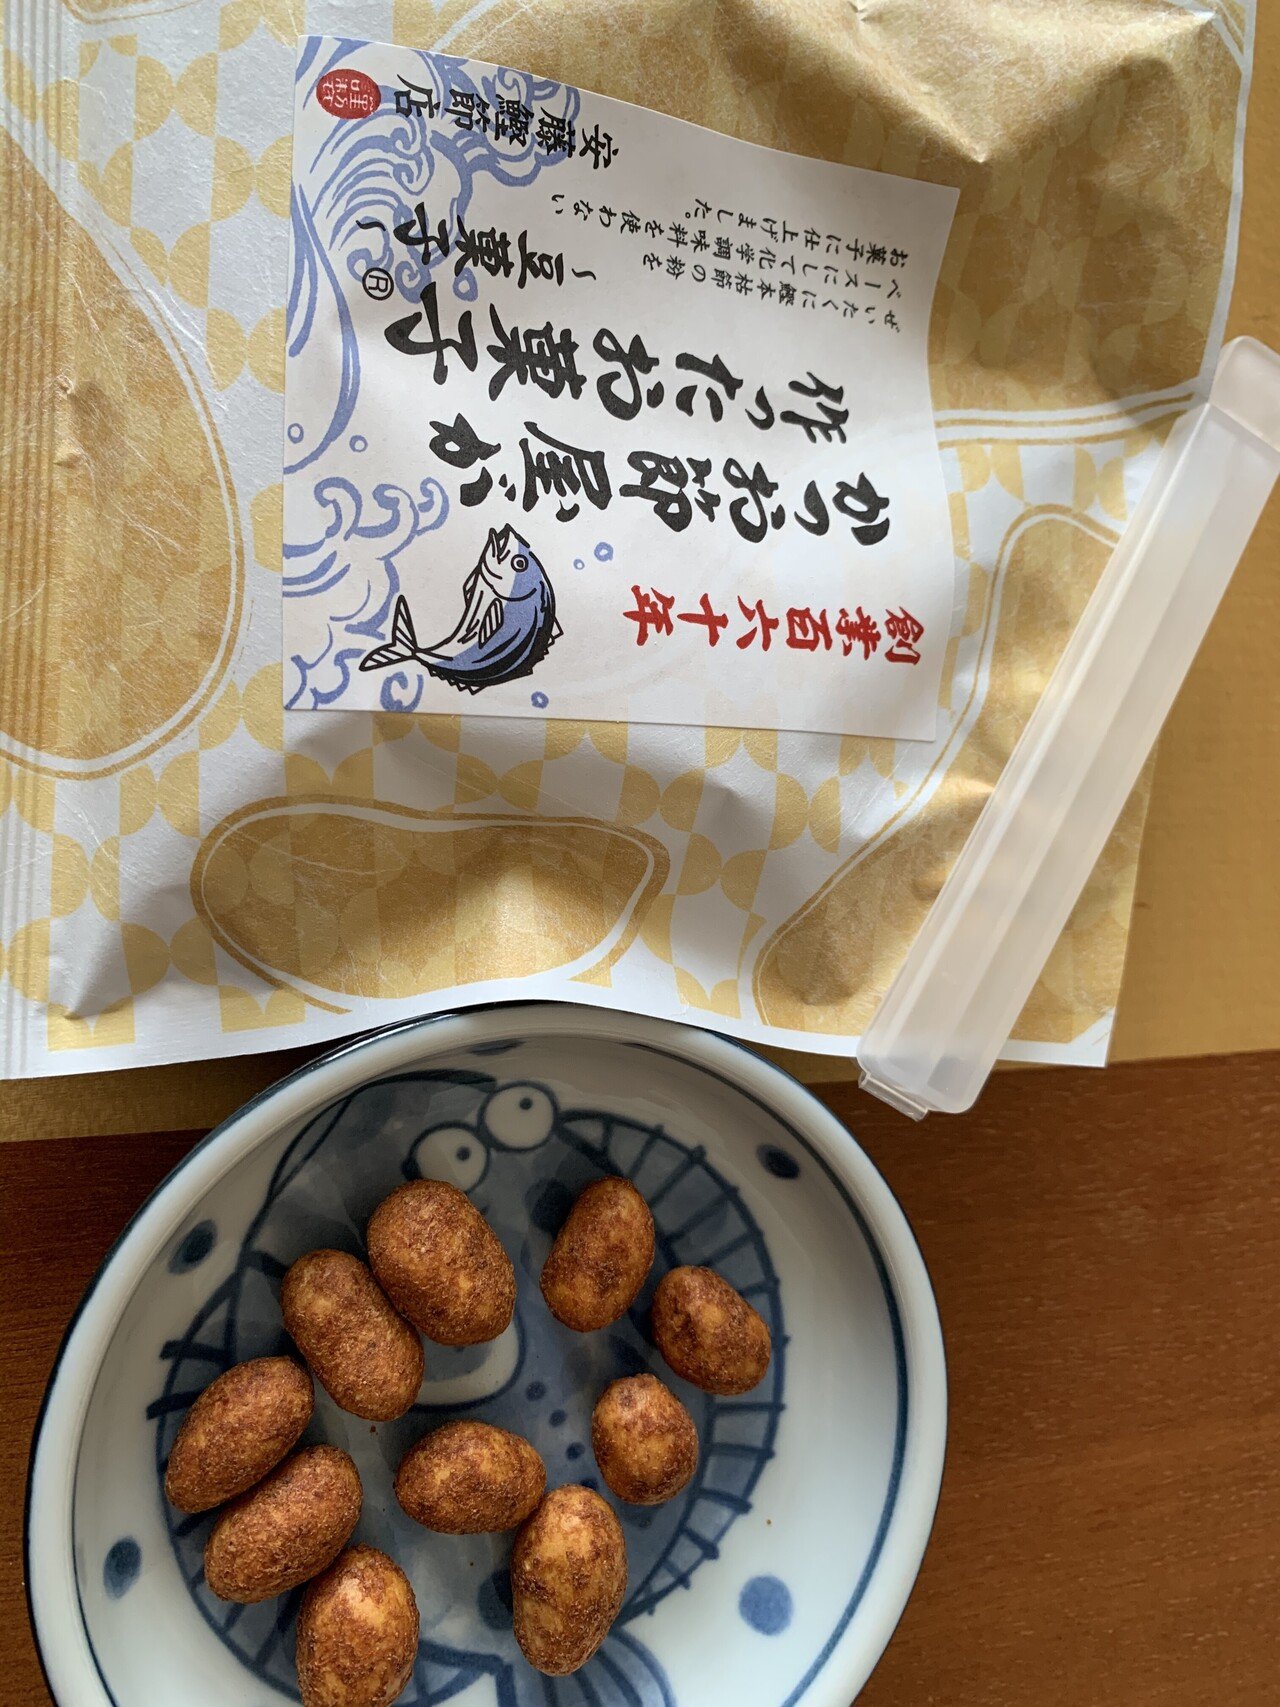 創業百六十年
かつお節屋が
作ったお菓子®
～豆菓子～
ぜいたくに鰹本枯節の粉を
ベースにして化学調味料を使わない
お菓子に仕上げました。
安藤鰹節店